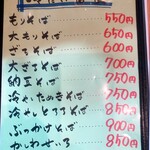 もりそば 550円
大もりそば 650円
ざるそば 600円
大ざるそば 700円
納豆そば 750円
冷やしたぬきそば 750円
冷やしとろろそば 850円
ぶっかけそば 900円
かしわせいろ 850円